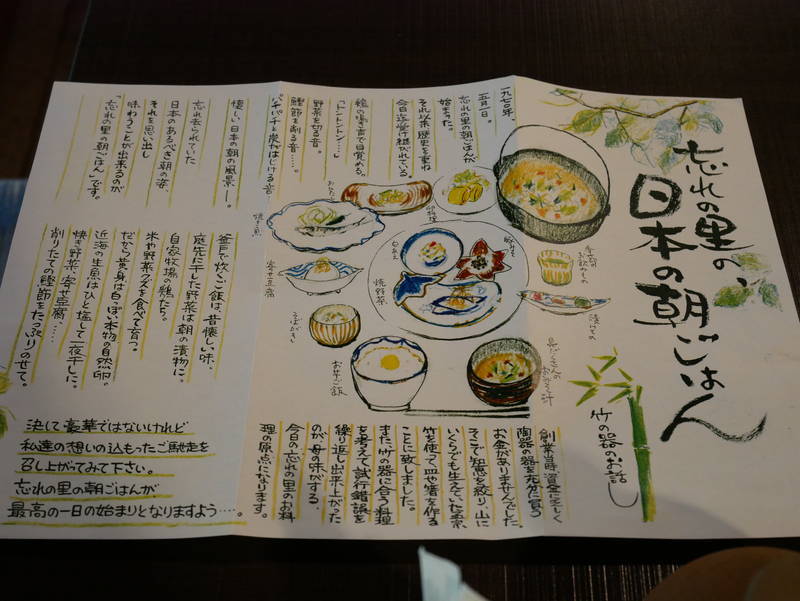 忘れの里の、
日本の朝ごはん
一九七〇年、
五月一日。
忘れの里の朝ごはんが
始まった。
それ以来歴史を重ね
今日迄受け継がれている。
鶏の鳴き声で目覚める。
「トントントン…」
野菜を切る音。
鰹節を削る音……。
パチパチと炭がはじける音
懐しい日本の朝の風景―。
忘れ去られていた
日本のあるべき朝の姿、
それを思い出し
味わうことが出来るのが
「忘れの里の朝ごはん」です。
釜戸で炊いたご飯は、昔懐しい味、
庭先に干した野菜は朝の漬物に。
自家牧場の鶏たち。
米や野菜クズを食べて育つ。
だから黄身は白っぽい本物の自然卵。
近海の生魚はひと塩して一夜干しに。
焼き野菜、寄せ豆腐、……
削りたての鰹節をたっぷりのせて。
決して豪華ではないけれど
私達の想いの込もったご馳走を
召し上がってみて下さい。
忘れの里の朝ごはんが
最高の一日の始まりとなりますよう……。
卵料理
焼き魚
寄せ豆腐
白あえ
焼野菜
そばがき
お芋ご飯
漬もの
具だくさんの
おみそ汁
竹の器のお話し
創業当時資金乏しく
陶器の器を充分に買う
お金がありませんでした。
そこで知恵を絞り、山に
いくらでも生えていた孟宗
竹を使って皿や箸を作る
ことに致しました。
また、竹の器に合う料理
を考えて試行錯誤を
繰り返し出来上がった
のが母の味がする、
今日の忘れの里のお料
理の原点になります。